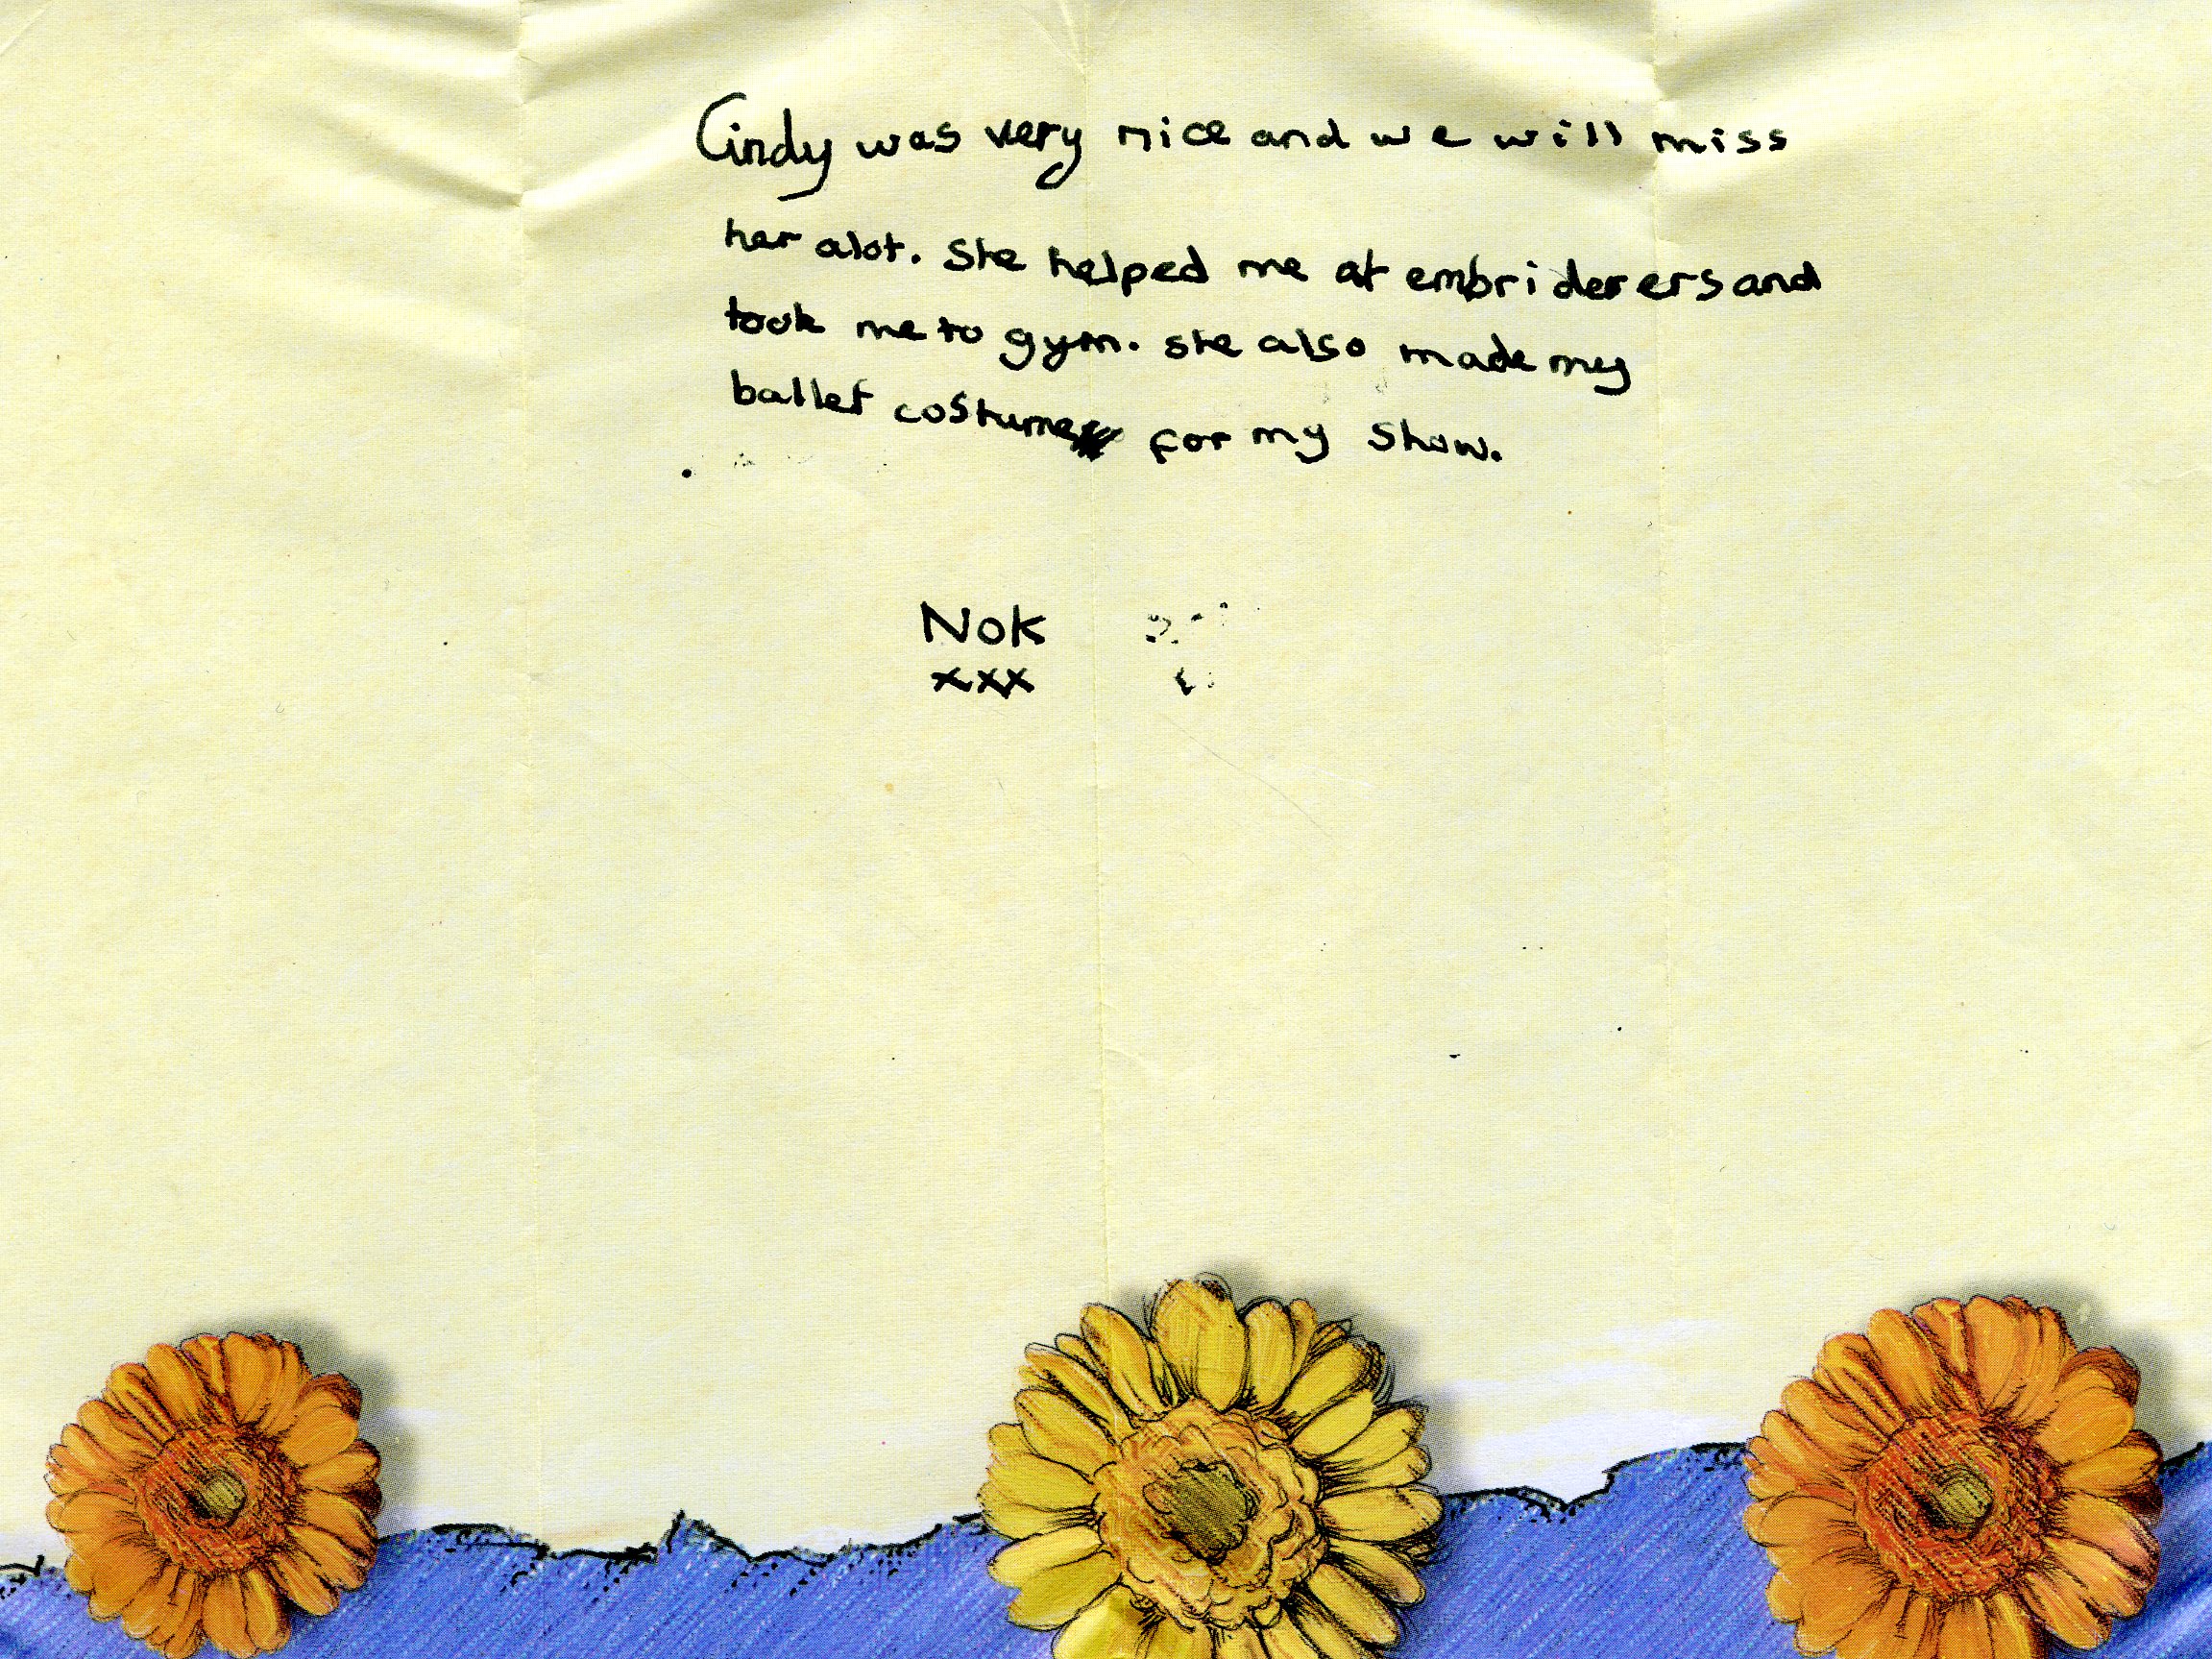 Cindy was very nice and we will miss
her alot. She helped me at embriderers and
took me to gym. she also made my
ballet costume for my show.
Nok
xxx